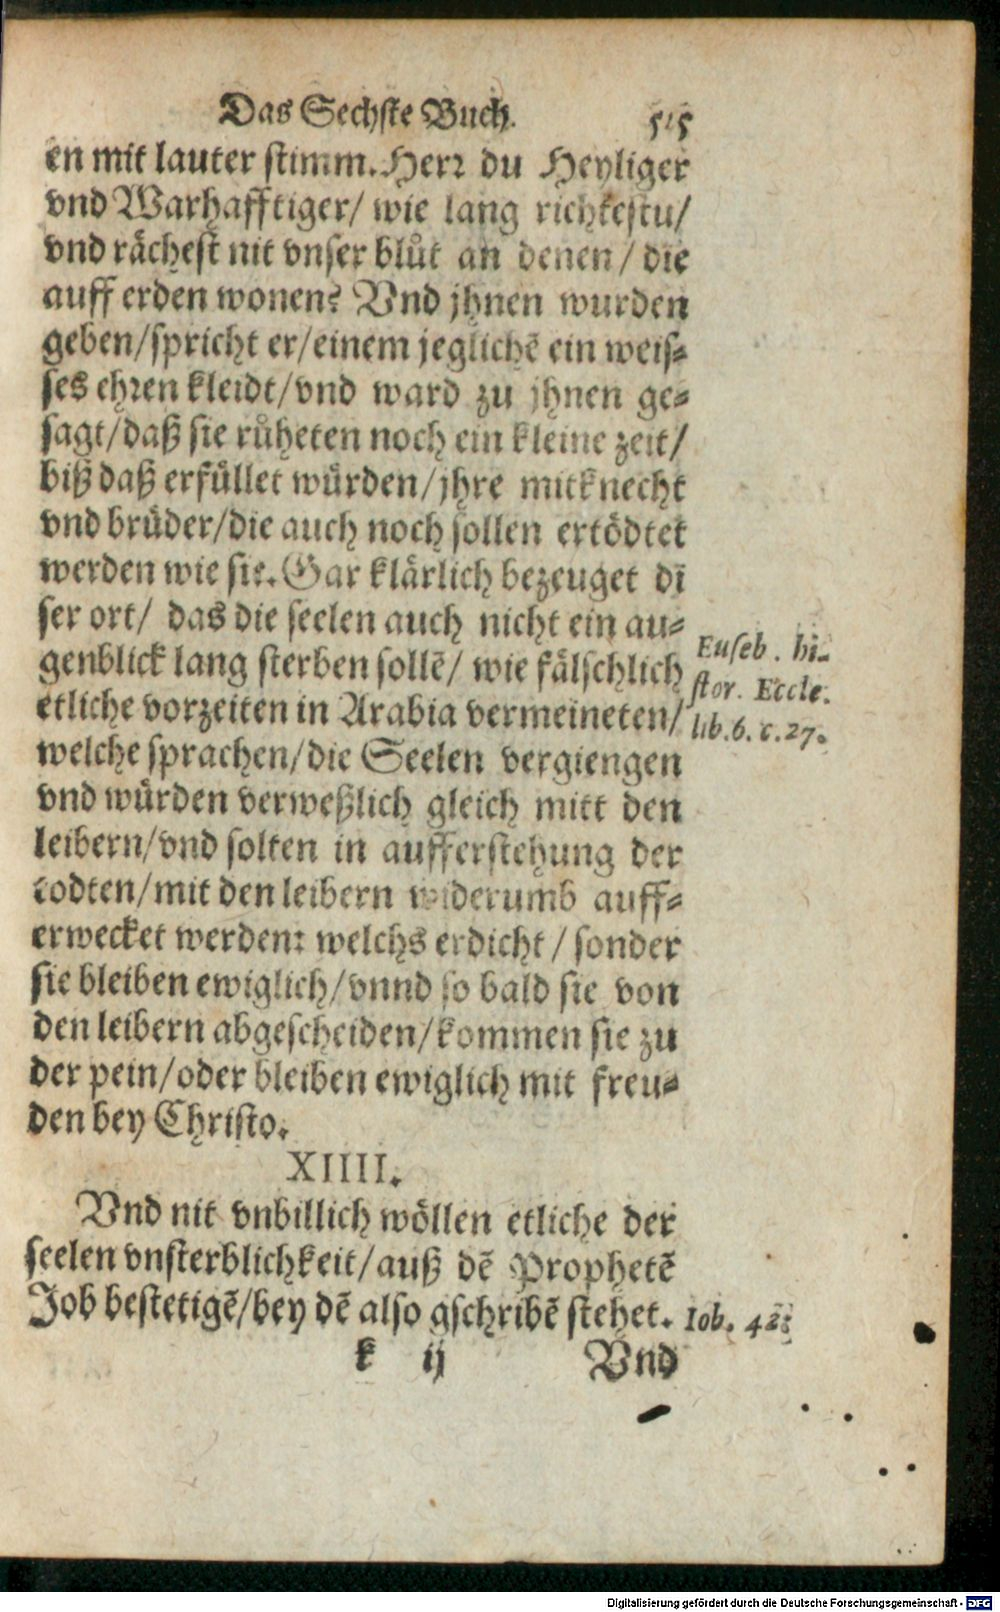 Das Sechste Buch. 515
en mit lauter stimm. Herr du Heyliger
vnd Warhafftiger/ wie lang richtestu/
vnd rächest nit vnser blůt an denen/ die
auff erden wonen? Vnd jhnen wurden
geben/spricht er/einem jeglichē ein weis⸗
ses ehren kleidt/vnd ward zu jhnen ge⸗
sagt/daß sie růheten noch ein kleine zeit/
biß daß erfüllet würden/jhre mitknecht
vnd brüder/die auch noch sollen ertödtet
werden wie sie. Gar klärlich bezeuget di
ser ort/ das die seelen auch nicht ein au⸗
genblick lang sterben sollē/ wie fälschlich
etliche vorzeiten in Arabia vermeineten/
Euseb. hi-
stor. Eccle.
lib. 6. c. 27.
welche sprachen/die Seelen vergiengen
vnd würden verweßlich gleich mitt den
leibern/vnd solten in aufferstehung der
todten/mit den leibern widerumb auff⸗
erwecket werden: welchs erdicht/ sonder
sie bleiben ewiglich/vnnd so bald sie von
den leibern abgescheiden/kommen sie zu
der pein/oder bleiben ewiglich mit freu⸗
den bey Christo.
XIIII.
Vnd nit vnbillich wöllen etliche der
seelen vnsterblichkeit/auß dē Prophetē
Job bestetigē/bey dē also gschribē stehet. Iob. 42:
k ij Vnd
Digitalisierung gefördert durch die Deutsche Forschungsgemeinschaft - DFG